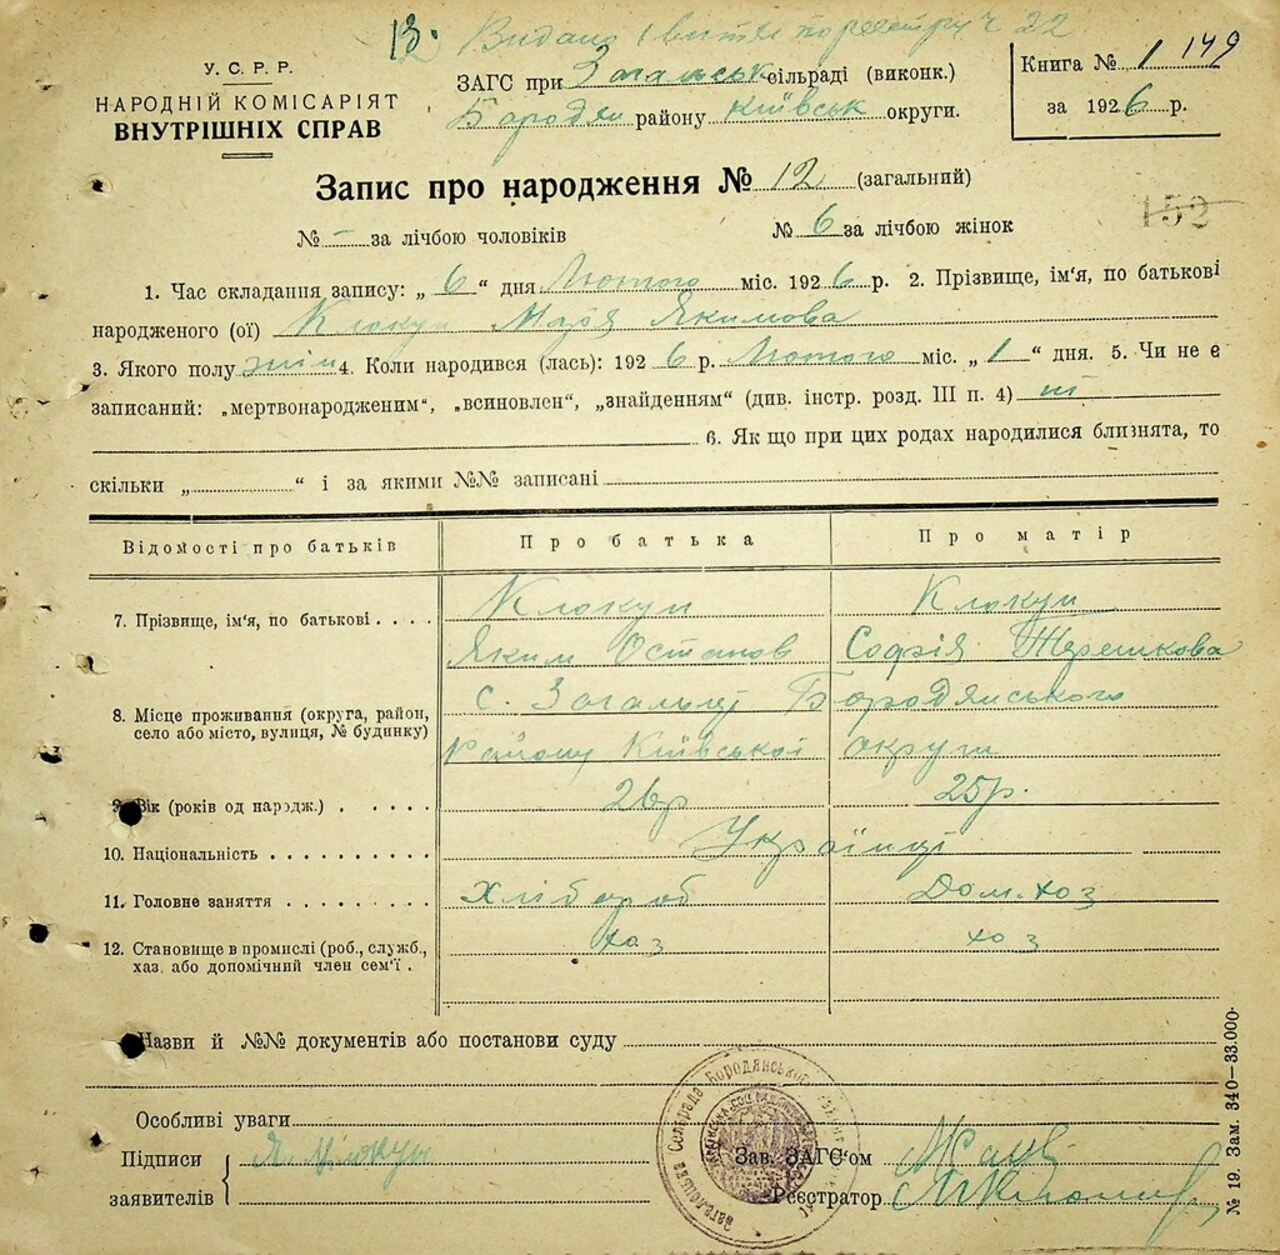 13. Видано по реєстру ч 22
У. С. Р. Р.
НАРОДНІЙ КОМІСАРІЯТ
ВНУТРІШНІХ СПРАВ
ЗАГС при Загальськ сільраді (виконк.)
Бородян району Київськ округи.
Книга № 1 149
за 1926 р.
Запис про народження № 12 (загальний)
152
№ – за лічбою чоловіків № 6 за лічбою жінок
1. Час складання запису: „ 6 “ дня Лютого міс. 1926 р. 2. Прізвище, ім'я, по батькові
народженого (ої) Клокун Марія Якимова
3. Якого полу жін 4. Коли народився (лась): 1926 р. Лютого міс. „ 1 “ дня. 5. Чи не є
записаний: „мертвонародженим“, „всиновлен“, „знайденням“ (див. інстр. розд. III п. 4) ні
6. Як що при цих родах народилися близнята, то
скільки „ “ і за якими №№ записані
Відомості про батьків Про батька Про матір
7. Прізвище, ім'я, по батькові . . . . Клокун Клокун
Яким Остапов Софія Терешкова
8. Місце проживання (округа, район,
село або місто, вулиця, № будинку)
с. Загальці Бородянського
Району Київської округи
9. Вік (років од народж.) . . . . . 26 р 25 р.
10. Національність . . . . . . . . . Українці
11. Головне заняття . . . . . . . . . Хлібороб Дом. хоз
12. Становище в промислі (роб., служб.,
хаз. або допомічний член сем'ї .
хаз хоз
Назви й №№ документів або постанови суду
Особливі уваги
Підписи
заявителів
Я. Клокун
Зав. ЗАГС'ом
Реєстратор
Загальцька Сельрада Бородянського
№ 19. Зам. 340—33.000.